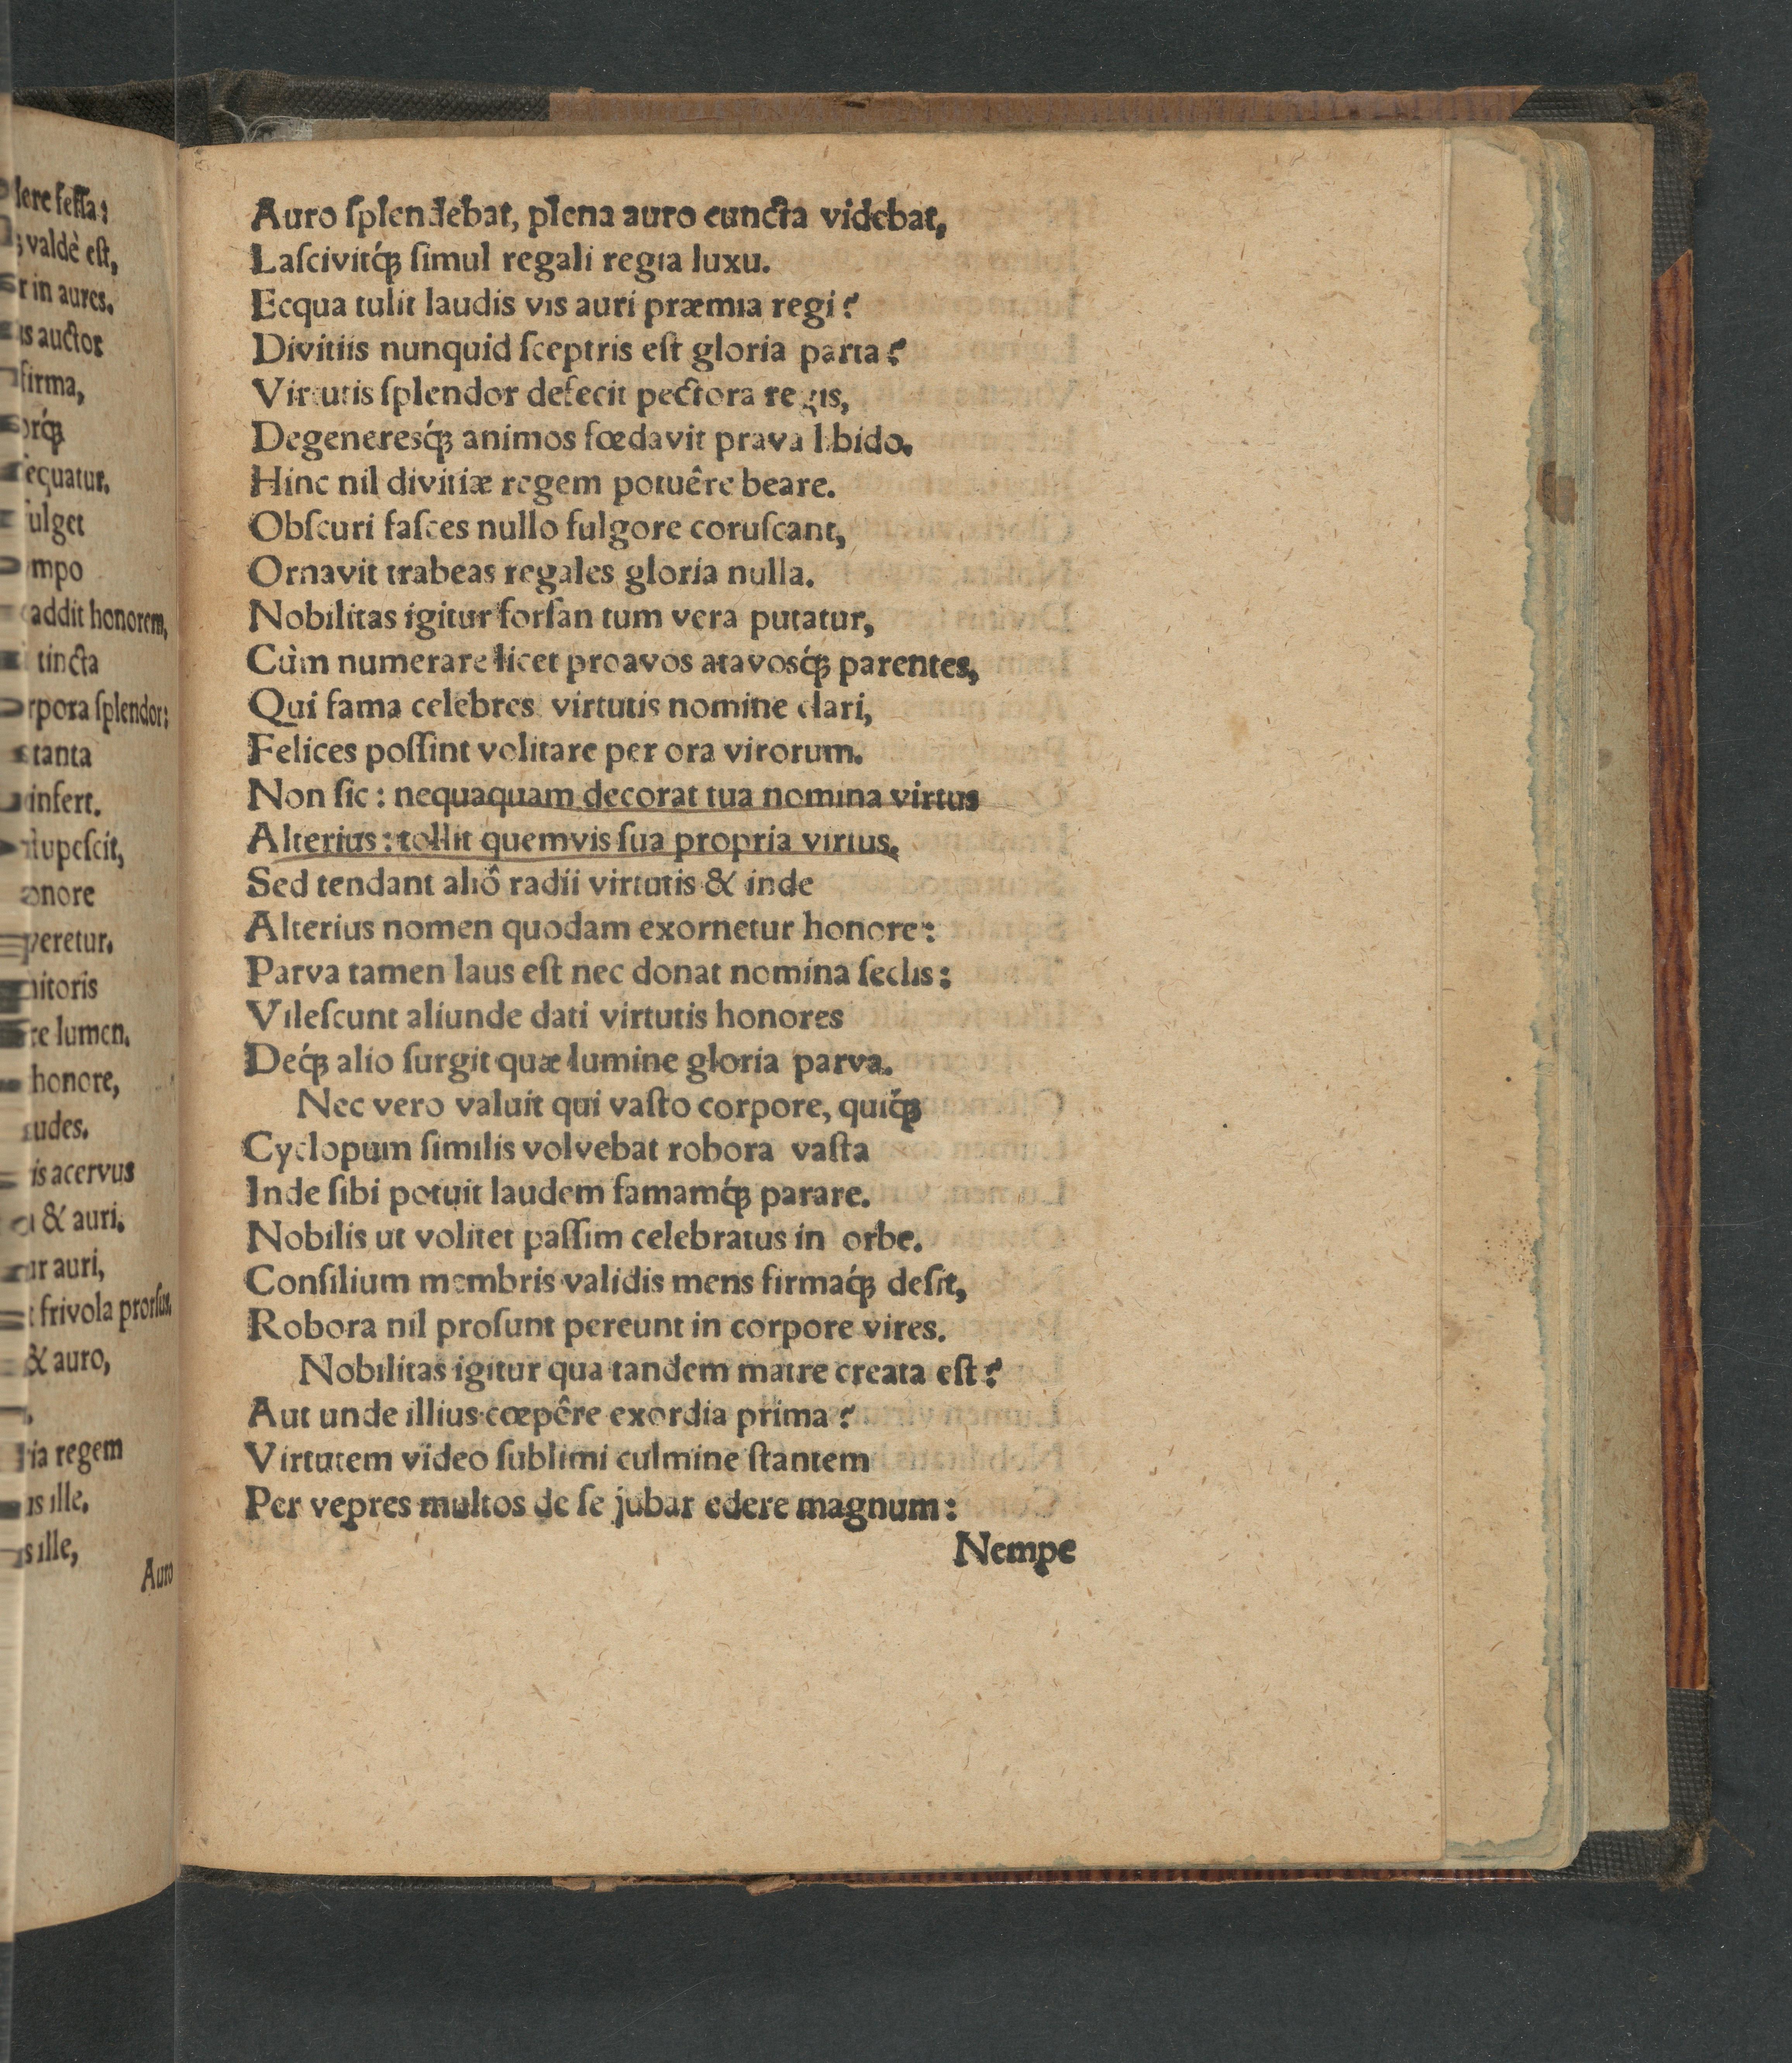 lere feſſa:
valdè eſt,
r in aures.
is auctor
firma,
orq́ꝫ
equatur.
fulget
mpo
addit honorem,
tincta
rpora ſplendor:
tanta
infert.
ſtupeſcit,
onore
peretur.
nitoris
re lumen.
honore,
udes.
is acervus
& auri.
ur auri,
t frivola prorſus.
& auro,
ria regem
is ille.
s ille,
Auro
Auro ſplendebat, plena auro cuncta videbat,
Laſcivitq́ꝫ ſimul regali regia luxu.
Ecqua tulit laudis vis auri præmia regi?
Divitiis nunquid ſceptris eſt gloria parta?
Virtutis ſplendor defecit pectora regis,
Degeneresq́ꝫ animos fœdavit prava libido.
Hinc nil divitiæ regem potuêre beare.
Obſcuri faſces nullo fulgore coruſcant,
Ornavit trabeas regales gloria nulla.
Nobilitas igitur forſan tum vera putatur,
Cùm numerare licet proavos atavosq́ꝫ parentes,
Qui fama celebres virtutis nomine clari,
Felices poſſint volitare per ora virorum.
Non ſic: nequaquam decorat tua nomina virtus
Alterius: tollit quemvis ſua propria virtus.
Sed tendant aliô radii virtutis & inde
Alterius nomen quodam exornetur honore:
Parva tamen laus eſt nec donat nomina ſeclis:
Vileſcunt aliunde dati virtutis honores
Deq́ꝫ alio ſurgit quæ lumine gloria parva.
Nec vero valuit qui vaſto corpore, quiq́ꝫ
Cyclopum ſimilis volvebat robora vaſta
Inde ſibi potuit laudem famamq́ꝫ parare.
Nobilis ut volitet paſſim celebratus in orbe.
Conſilium membris validis mens firmaq́ꝫ deſit,
Robora nil proſunt pereunt in corpore vires.
Nobilitas igitur qua tandem matre creata eſt?
Aut unde illius cœpêre exordia prima?
Virtutem video ſublimi culmine ſtantem
Per vepres multos de ſe jubar edere magnum:
Nempe